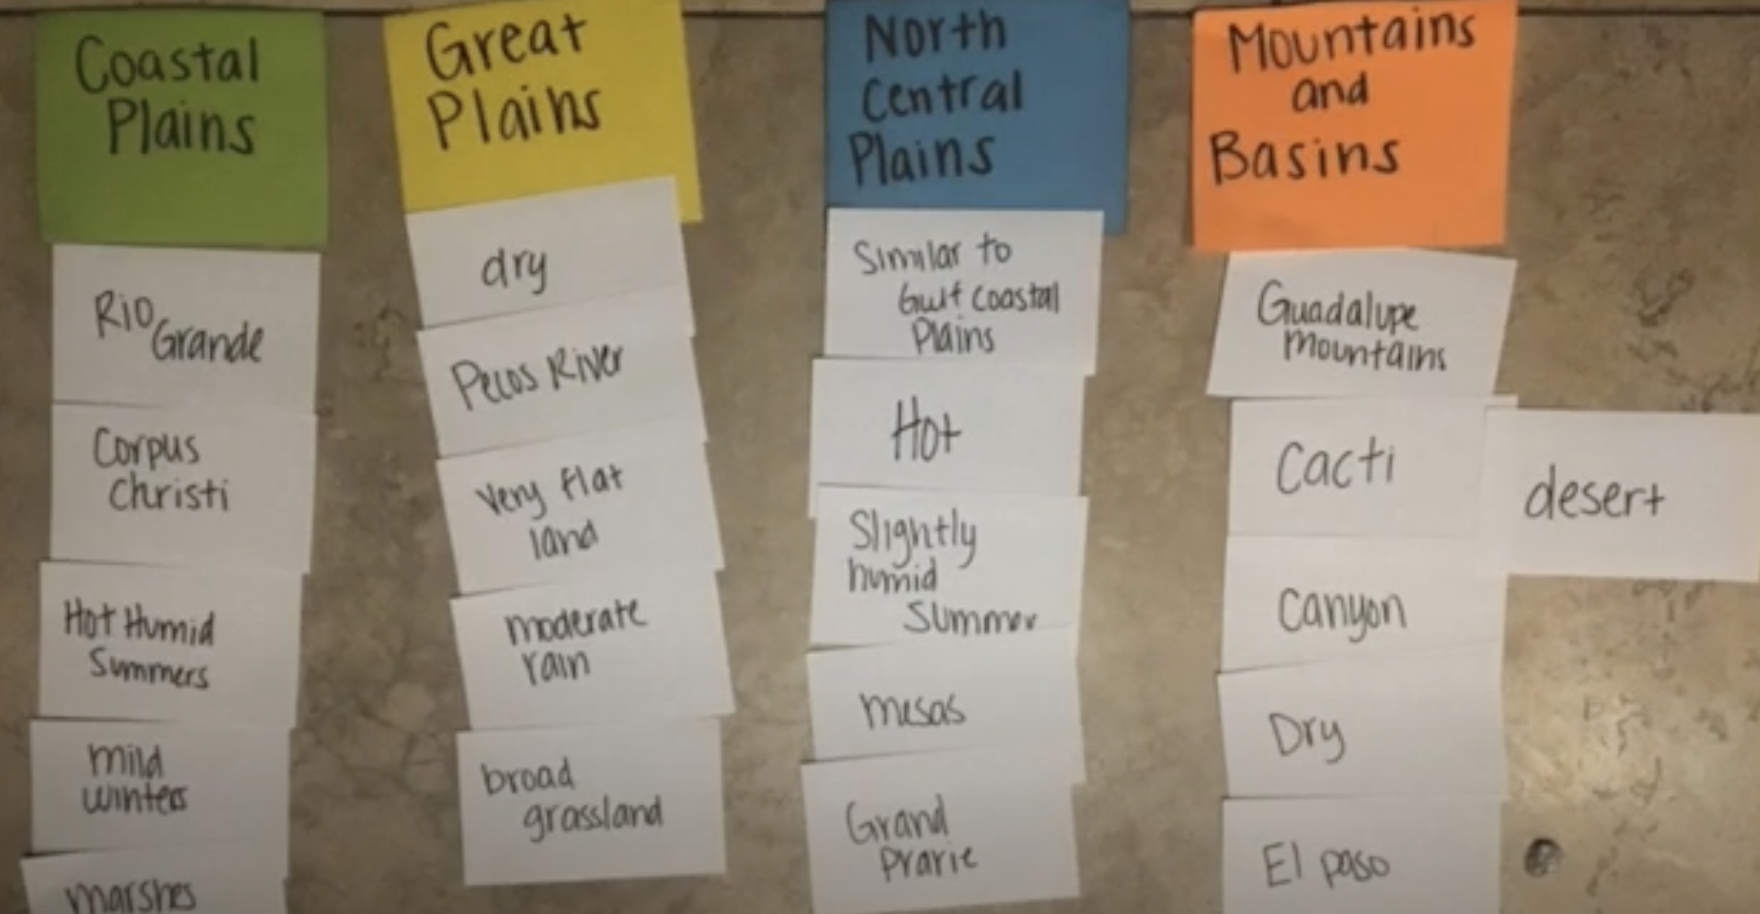 Coastal
Plains
Rio
Grande
Corpus
Christi
Hot Humid
Summers
mild
winters
marshes
Great
Plains
dry
Pecos River
very flat
land
moderate
rain
broad
grassland
North
Central
Plains
Similar to
Gulf Coastal
Plains
Hot
Slightly
humid
Summer
mesas
Grand
Prarie
Mountains
and
Basins
Guadalupe
mountains
Cacti
desert
Canyon
Dry
El paso